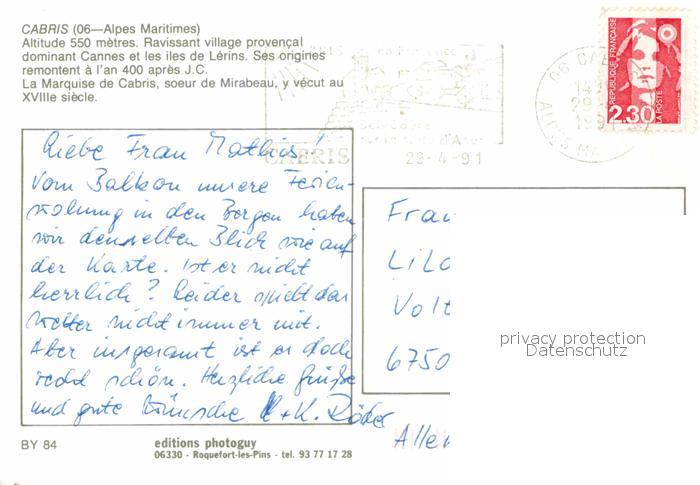 CABRIS (06—Alpes Maritimes)
Altitude 550 mètres. Ravissant village provençal
dominant Cannes et les iles de Lérins. Ses origines
remontent à l'an 400 après J.C.
La Marquise de Cabris, soeur de Mirabeau, y vécut au
XVIIIe siècle.
RÉPUBLIQUE FRANÇAISE
2,30
LA POSTE
06 CA
14
29
ALPES MA
CABRIS
29-4-91
Liebe Frau Mathias!
Vom Balkon unsere Ferien-
wohnung in den Bergen haben
wir denselben Blick wie auf
der Karte. Ist er nicht
herrlich? Leider spielt das
Wetter nicht immer mit.
Aber insgesamt ist es doch
recht schön. Herzliche Grüße
und gute Wünsche K. + K. Röder
Frau
Lilo
Volt
6750
Aller
privacy protection
Datenschutz
BY 84
editions photoguy
06330 - Roquefort-les-Pins - tel. 93 77 17 28